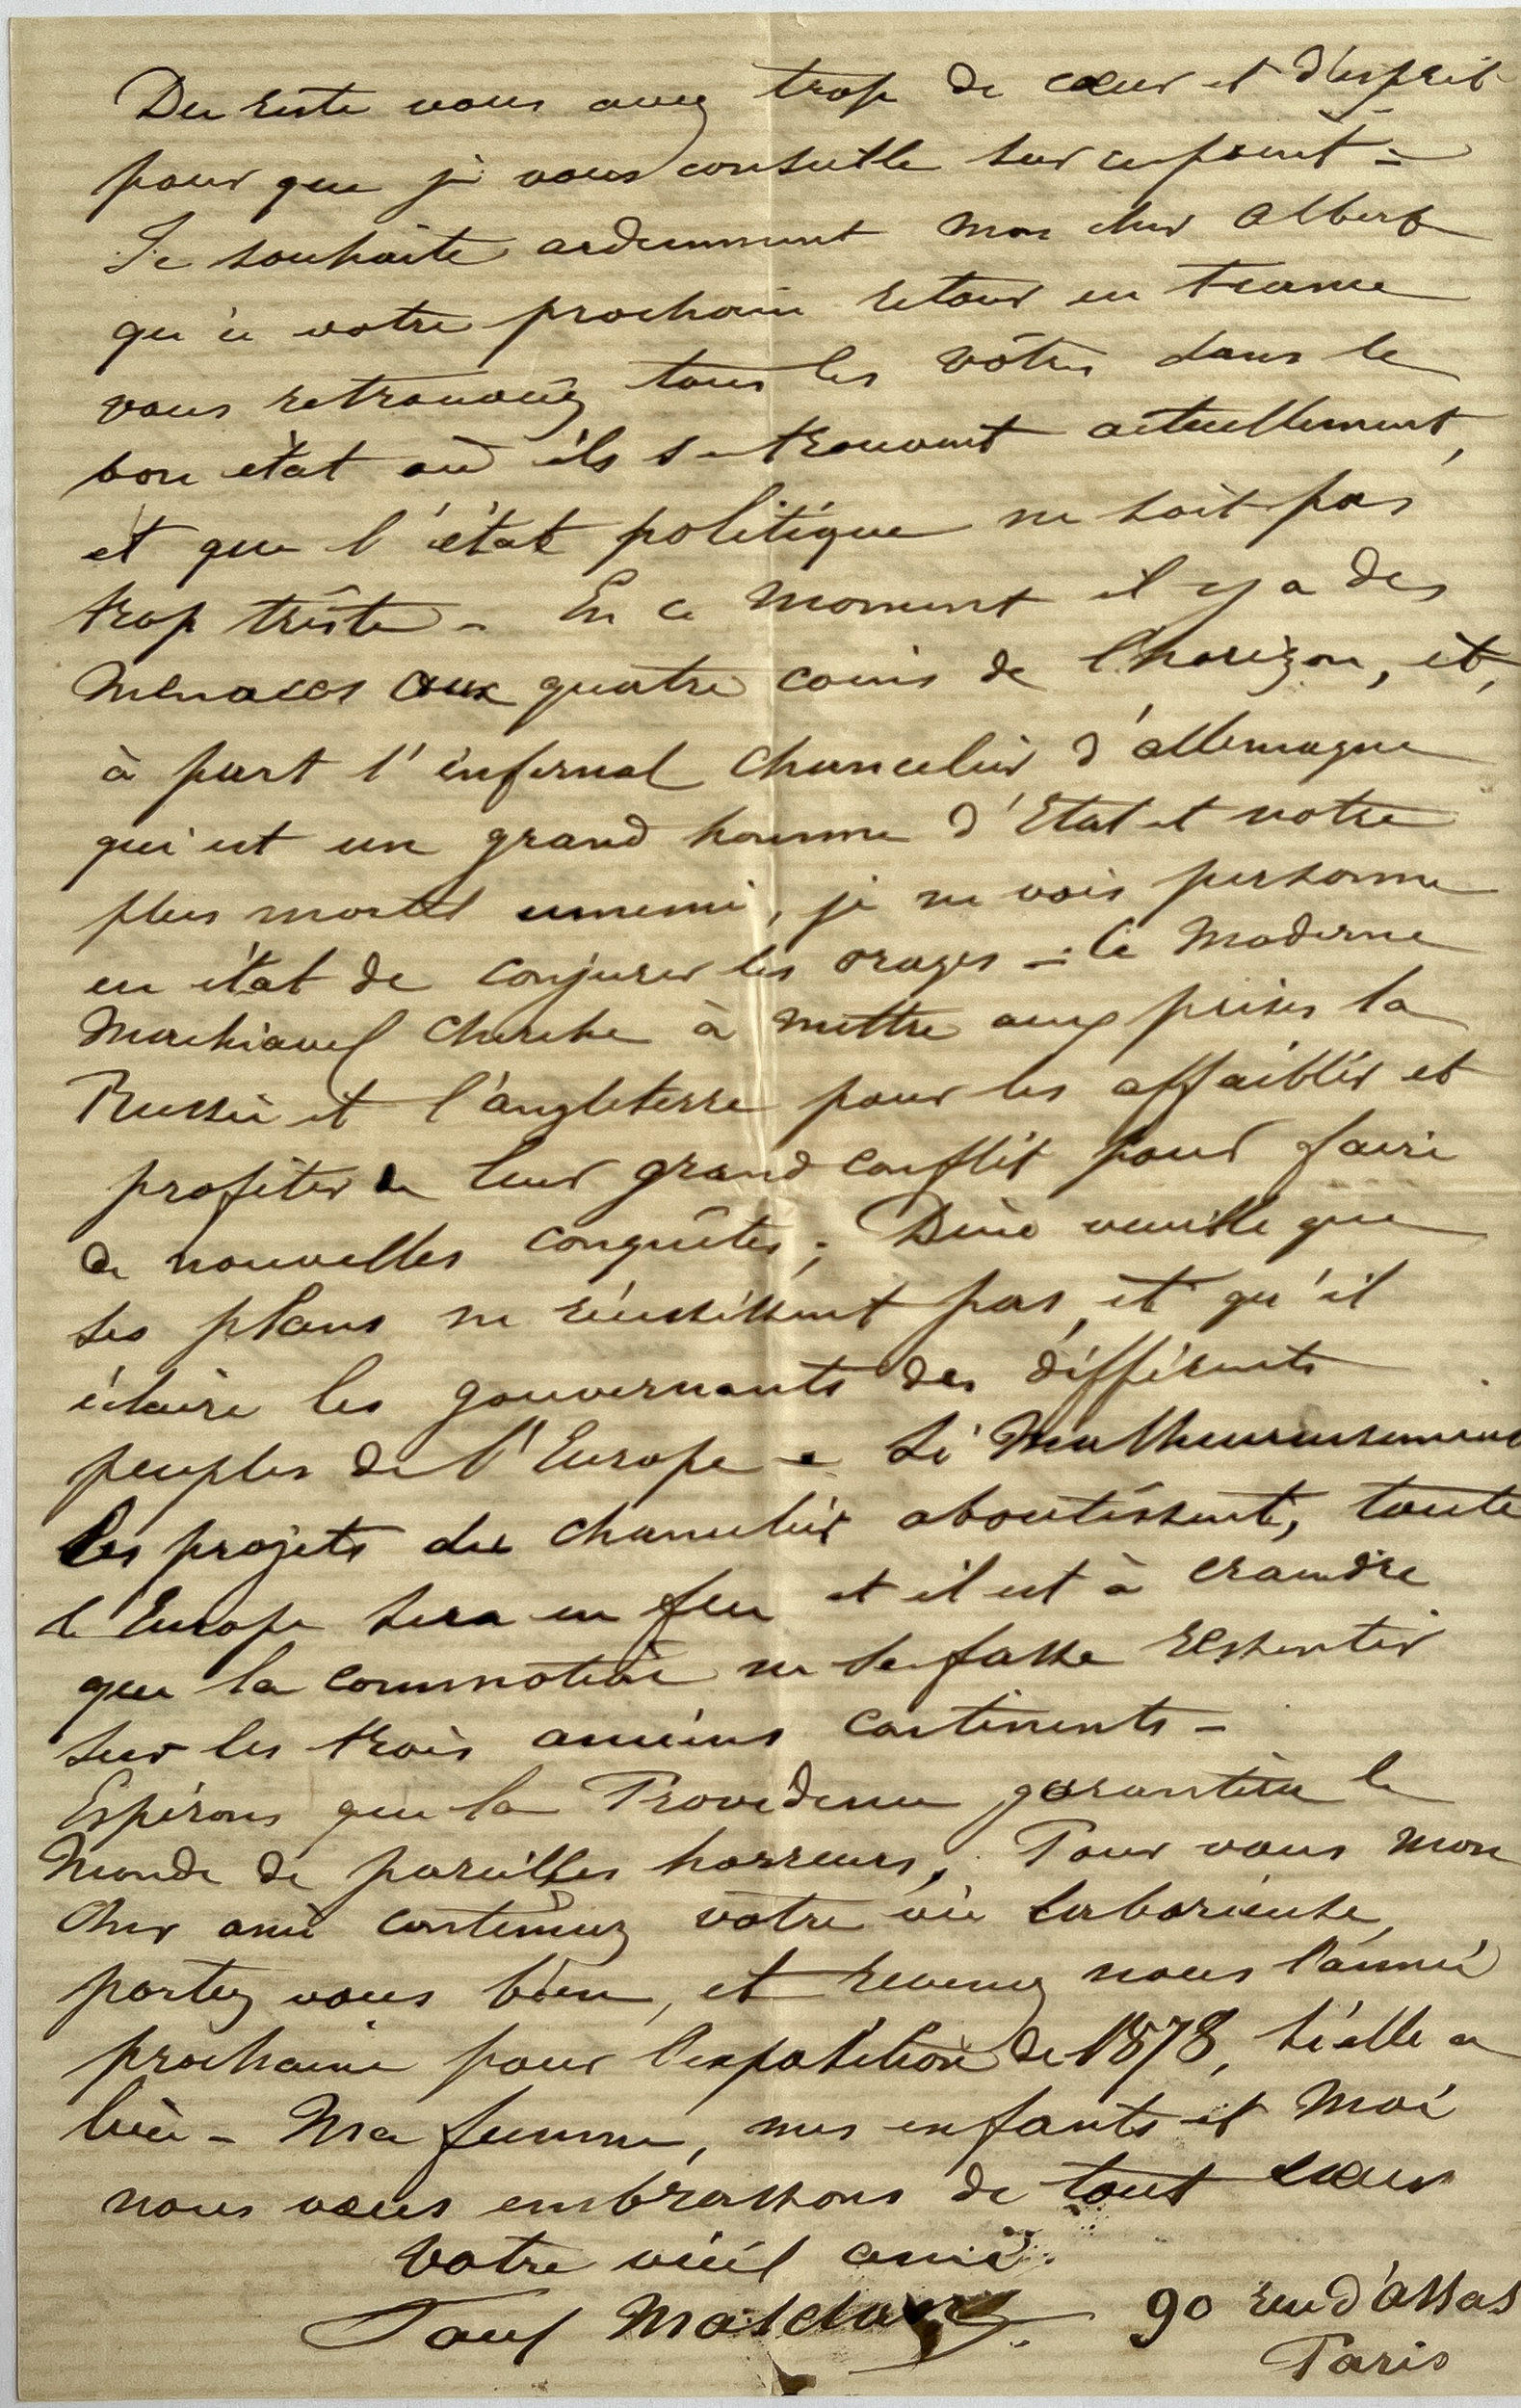 Du reste vous avez trop de cœur et d'esprit
pour que je vous conseille sur ce point =
Je souhaite ardemment mon cher Albert
qu'à votre prochain retour en France
vous retrouviez tous les vôtres dans le
bon état où ils se trouvent actuellement,
et que l'état politique ne soit pas
trop triste - En ce moment il y a des
menaces aux quatre coins de l'horizon, et,
à part l'infernal chancelier d'allemagne
qui est un grand homme d'Etat et notre
plus mortel ennemi, je ne vois personne
en état de conjurer les orages - Ce moderne
Machiavel cherche à mettre aux prises la
Russie et l'angleterre pour les affaiblir et
profiter de leur grand conflit pour faire
de nouvelles conquêtes; Dieu veuille que
ses plans ne réussissent pas, et qu'il
éclaire les gouvernants des différents
peuples de l'Europe - Si malheureusement
les projets du chancelier aboutissent, toute
l'Europe sera en feu et il est à craindre
que la commotion ne se fasse ressentir
sur les trois anciens continents -
Espérons que la Providence garantira le
monde de pareilles horreurs, Pour vous mon
cher ami continuez votre vie laborieuse,
portez vous bien, et revenez nous l'année
prochaine pour l'exposition de 1878, si elle a
lieu - Ma femme, mes enfants et moi
nous vous embrassons de tout cœur
votre vieil ami
Paul
90 rue d'assas
Paris